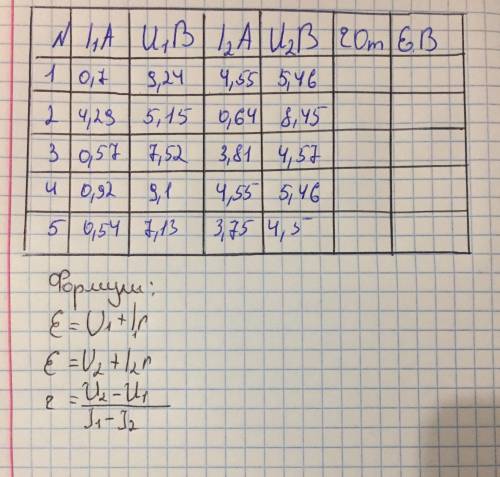 N I₁A U₁B I₂A U₂B r Om ε.B
1 0,7 9,24 4,55 5,46
2 4,29 5,15 0,64 8,45
3 0,57 7,52 3,81 4,57
4 0,92 9,1 4,55 5,46
5 0,54 7,13 3,75 4,5
Формули:
ε = U₁ + I₁r
ε = U₂ + I₂r
r = U₂ - U₁
I₁ - I₂